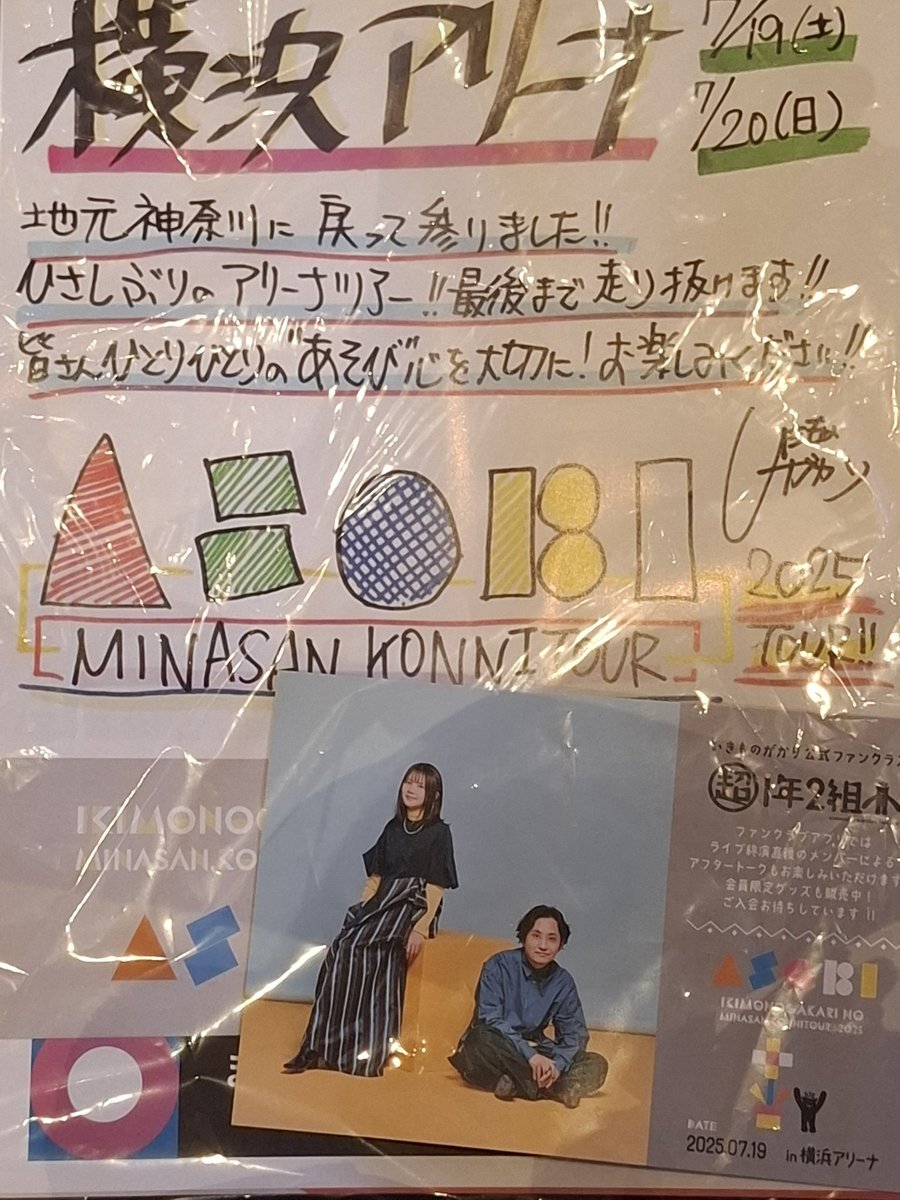 横浜アリーナ
7/19(土)
7/20(日)
地元神奈川に戻って参りました!!
ひさしぶりのアリーナツアー!!最後まで走り抜けます!!
皆さんひとりびとりの"あそび"心を大切に!お楽しみください!!
ASOBI
2025
TOUR!!
MINASAN KONNITOUR
IKIMONOG
MINASAN KO
AS
いきものがかり公式ファンクラ
超1年2組
ファンクラブアプリでは
ライブ終演直後のメンバーによる
アフタートークもお楽しみいただけます
会員限定グッズも販売中!
ご入会お待ちしています!!
ASOBI
IKIMONOGAKARI NO
MINASAN KONNITOUR 2025
DATE
2025.07.19 in 横浜アリーナ